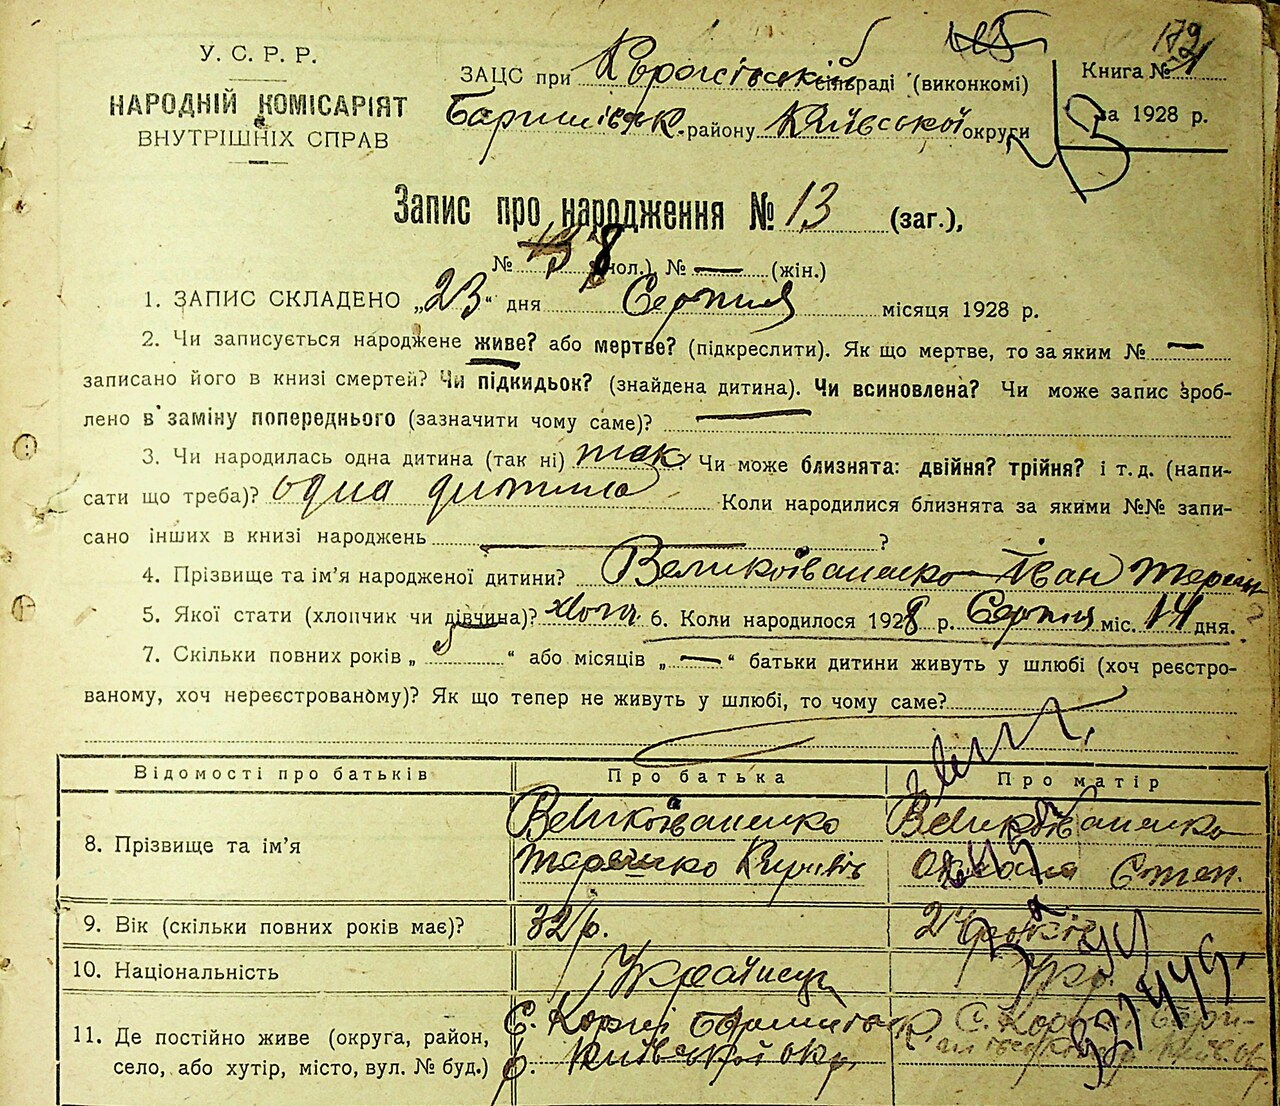 У. С. Р. Р.
НАРОДНІЙ КОМІСАРІЯТ
ВНУТРІШНІХ СПРАВ
ЗАЦС при Коржівській сільраді (виконкомі)
Баришівськ. району Київської округи
Книга №
за 1928 р.
172
Запис про народження № 13 (заг.),
№ 8 (чол.), № — (жін.)
1. ЗАПИС СКЛАДЕНО „23“ дня Серпня місяця 1928 р.
2. Чи записується народжене живе? або мертве? (підкреслити). Як що мертве, то за яким № —
записано його в книзі смертей? Чи підкидьок? (знайдена дитина). Чи всиновлена? Чи може запис зроб-
лено в заміну попереднього (зазначити чому саме)? —
3. Чи народилась одна дитина (так ні) так Чи може близнята: двійня? трійня? і т. д. (напи-
сати що треба)? одна дитина Коли народилися близнята за якими №№ запи-
сано інших в книзі народжень — ?
4. Прізвище та ім’я народженої дитини? Великоіваненко Іван Тереш
5. Якої стати (хлопчик чи дівчина)? хлоп. 6. Коли народилося 1928 р. Серпня міс. 14 дня.
7. Скільки повних років „ “ або місяців „—“ батьки дитини живуть у шлюбі (хоч реєстро-
ваному, хоч нереєстрованому)? Як що тепер не живуть у шлюбі, то чому саме?
Відомості про батьків Про батька Про матір
8. Прізвище та ім’я
Великоіваненко
Терешко
Великоіваненко
Оксана Степ.
9. Вік (скільки повних років має)? 32 р. 24 років
10. Національність Українець Укр.
11. Де постійно живе (округа, район,
село, або хутір, місто, вул. № буд.)
С. Коржі Баришівськ
р. Київської окр.
С. Коржі Бари-
шівськ Київ. окр.